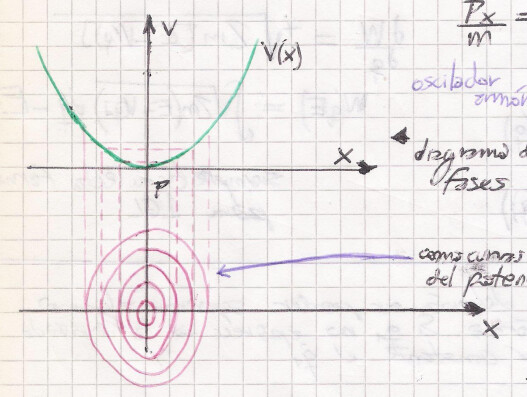 V
V(x)
Px/m =
oscilador
armón
X
diagrama d
fases
P
como curvas
del poten
X